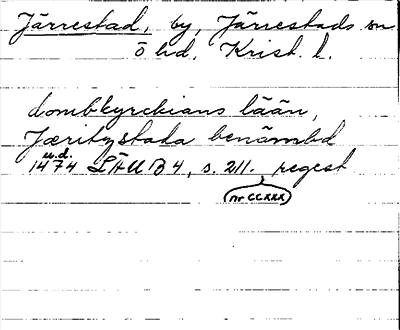 Järrestad, by, Järrestads sn
Ö hd, Krist. l.
dombkyrckians lään,
Jæritzstada benämbd
u.d.
1474 LÄU B 4, s. 211. regest
nr CCXXX